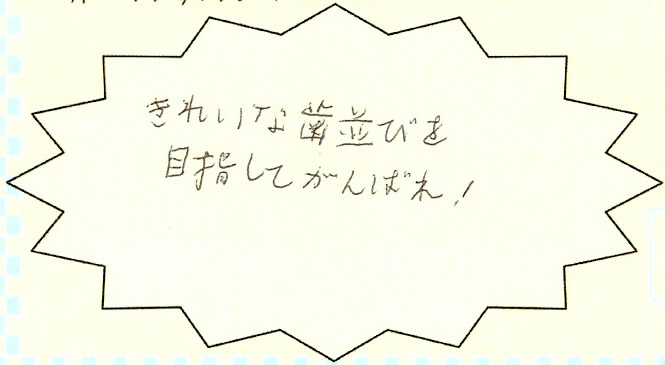 きれいな歯並びを
目指してがんばれ!